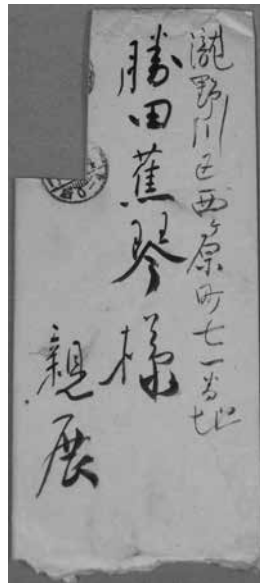 滝野川区西ヶ原町七一番地
勝田蕉琴様
親展